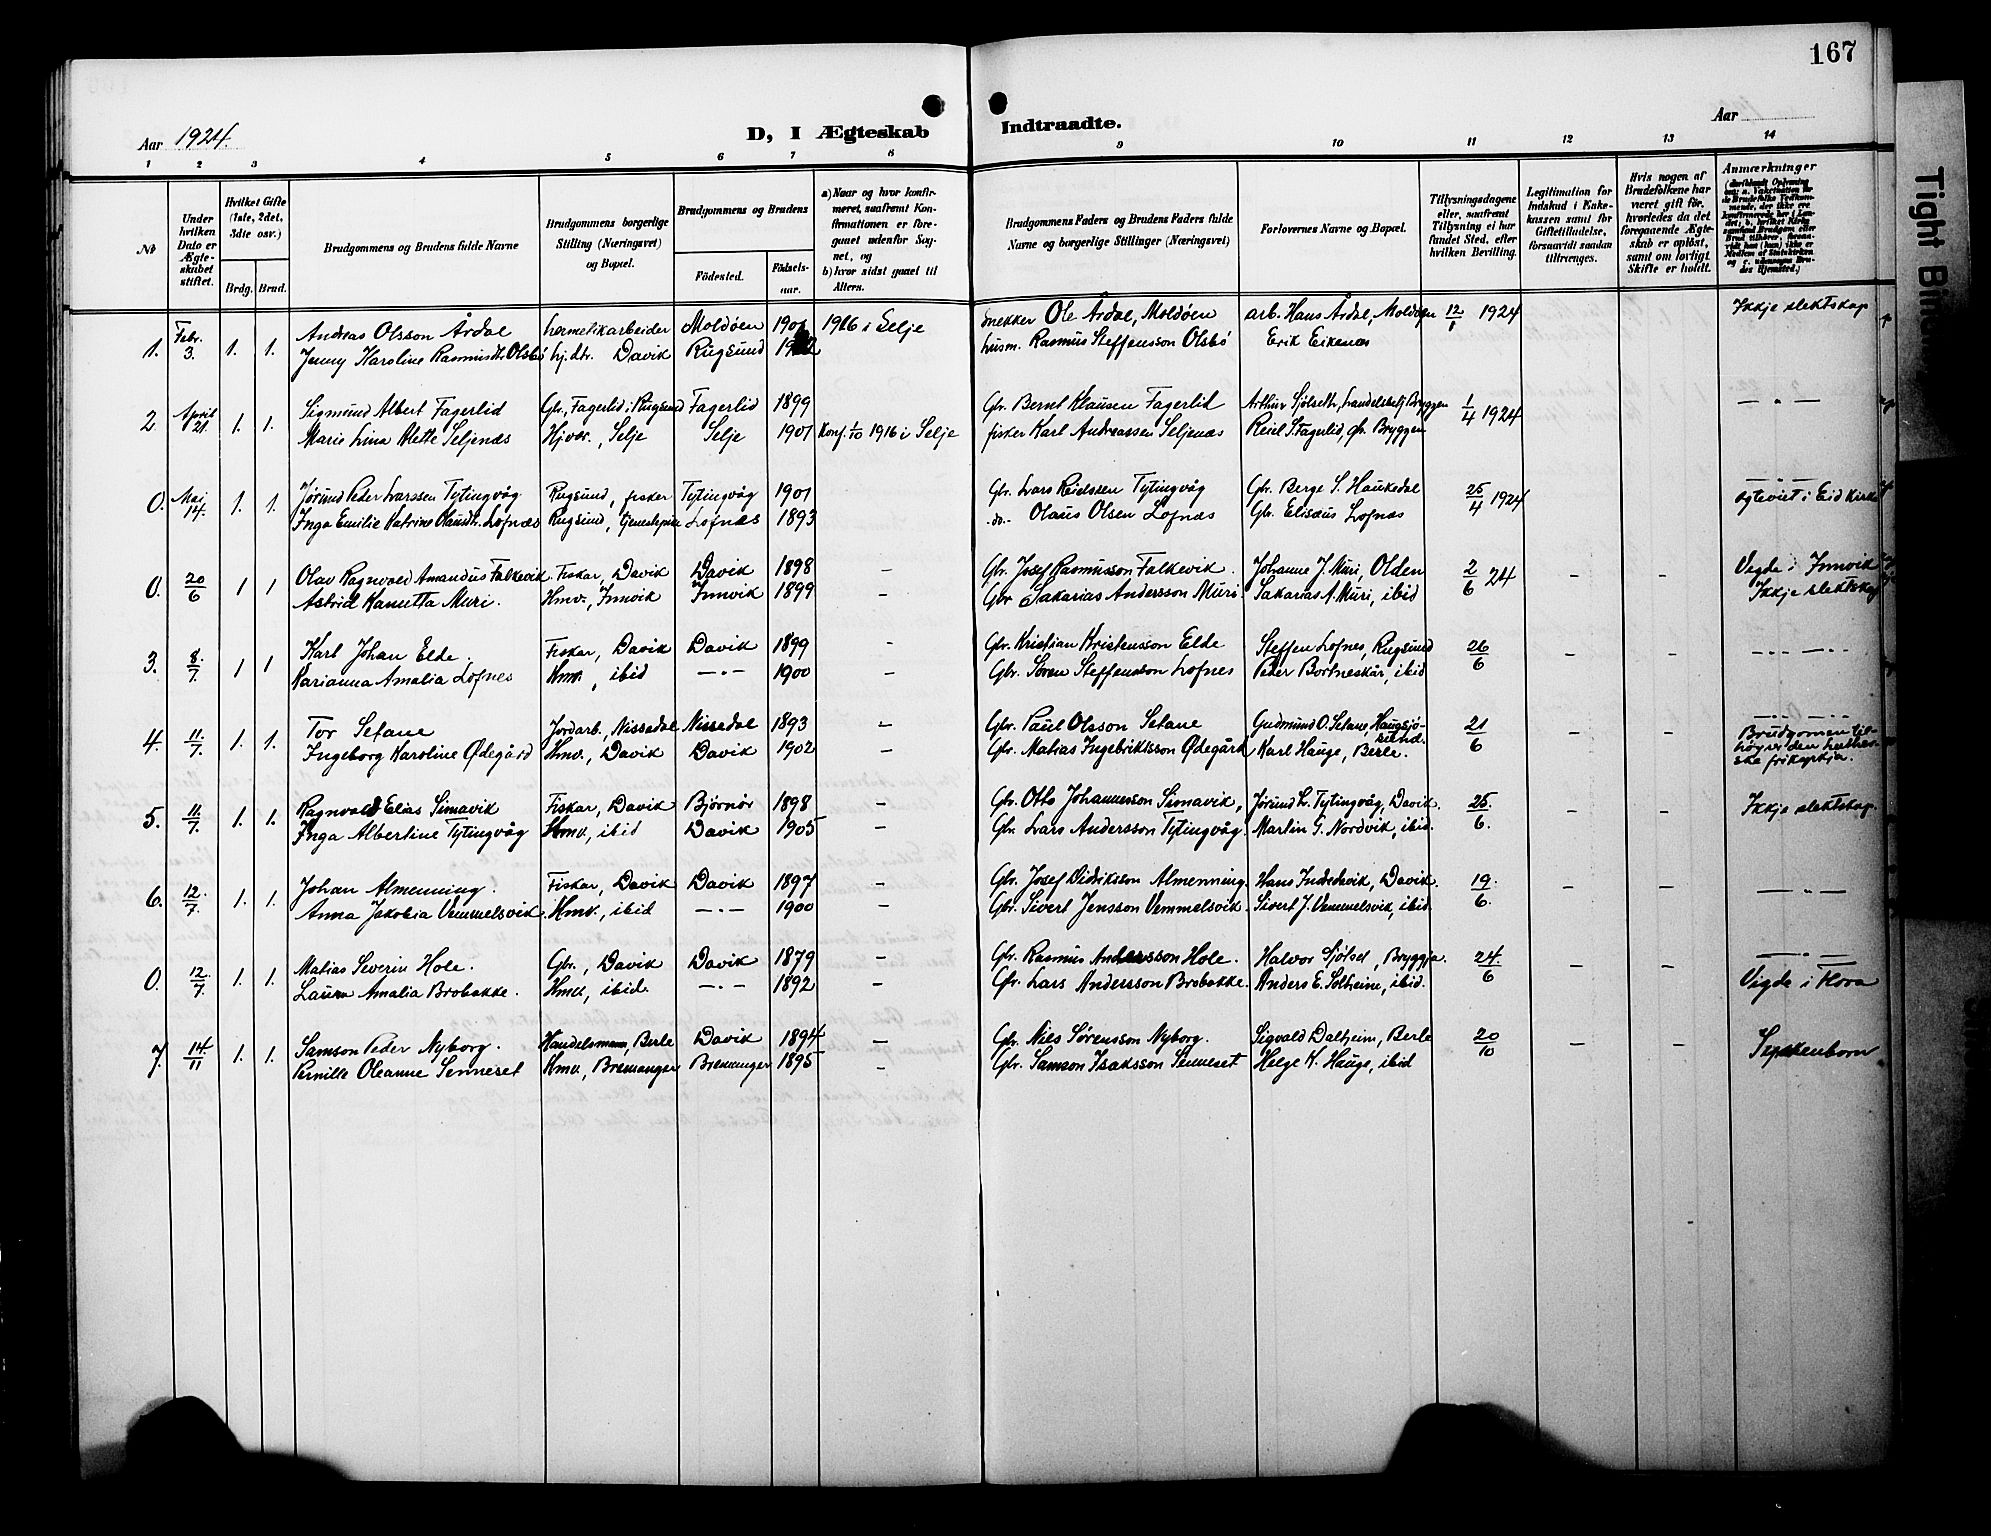 167
Aar 1924.
D, I Ægteskab
Indtraadte.
Aar
1 2 3 4 5 6 7 8 9 10 11 12 13 14
No
Under hvilken Dato er Ægteskabet stiftet.
Hvilket Gifte (1ste, 2det, 3die osv.)
Brdg. Brud.
Brudgommens og Brudens fulde Navne
Brudgommens borgerlige Stilling (Næringsvei) og Bopæl.
Brudgommens og Brudens
Fødested.
Fødselsaar.
a) Naar og hvor konfirmeret, saafremt Konfirmationen er foregaaet udenfor Sognet, og
b) hvor sidst gaaet til Alters.
Brudgommens Faders og Brudens Faders fulde Navne og borgerlige Stillinger (Næringsvei)
Forlovernes Navne og Bopæl.
Tillysningsdagene eller, saafremt Tillysning ei har fundet Sted, efter hvilken Bevilling.
Legitimation for Indskud i Enkekassen samt for Giftetilladelse, forsaavidt saadan tiltrænges.
Hvis nogen af Brudefolkene har været gift før, hvorledes da det foregaaende Ægteskab er opløst, samt om lovligt Skifte er holdt.
Anmærkninger
1. Febr. 3. 1. 1. Andreas Olsson Årdal hermetikarbeider Moldøen 1901 1916 i Selje snekker Ole Årdal, Moldøen arb. Hans Årdal, Moldøen 12/1 1924 Ikkje slektskap
Jenny Karoline Rasmusdtr. Olsbø hj.dtr. Davik Rugsund 1902 husm. Rasmus Steffensson Olsbø Erik Eikenæs
2 April 21. 1. 1. Sigmund Albert Fagerlid Gbr., Fagerlid i Rugsund Fagerlid 1899 Gbr. Bernt Klausen Fagerlid Arthur Sjølseth, handelsbetj Bryggen 1/4 1924 — " —
Marie Lina Mette Seljenæs Hjvsr., Selje Selje 1901 Konf. 1/10 1916 i Selje fisker Karl Andreassen Seljenæs Reiel S. Fagerlid, Gbr. Bryggen
0. Mai 14. 1. 1. Jørund Peder Larssen Tytingvåg Rugsund, fisker Tytingvåg 1901 Gbr. Lars Reidssen Tytingvåg Gbr. Berge S. Haukedal 25/4 1924 — " —
Inga Emilie Katrine Olausdtr. Lofnæs Rugsund, tjenestepike Lofnæs 1893 -do- Olaus Olsen Lofnæs Gbr. Elisæus Lofnæs egteviet i Eid kirke
0. 20/6 1 1 Olav Ragnvald Amandus Falkevik Fiskar, Davik Davik 1898 — Gbr. Josef Rasmusson Falkevik. Johanne J. Muri, Olden 2/6 24 — — Vigde i Innvik
Astrid Kanutta Muri. Hmv., Innvik Innvik 1899 — Gbr Sakarias Andersson Muri. Sakarias A. Muri, ibid Ikkje slektskap
3. 8./7. 1 1 Karl Johan Elde. Fiskar, Davik Davik 1899 — Gbr. Kristian Kristensson Elde Steffen Lofnes, Rugsund 26/6 — — — " —
Karianna Amalia Lofnes Hmv., ibid — " — 1900 — Gbr. Søren Steffensson Lofnes Peder Bortneskar, ibid
4. 11./7. 1. 1. Tor Setane Jordarb., Nissedal Nissedal 1893 — Gbr. Paul Olsson Setane Gudmund O. Setane, Haugsjåsund. 21/6 — " —
Ingeborg Karoline Ødegård Hmv., Davik Davik 1902 Gbr. Matias Ingebriktsson Ødegård Karl Hauge, Berle. Brudgomen tilhøyer den lutherske frikyrkja.
5. 11./7. 1. 1. Ragnvald Elias Simavik Fiskar, Davik Bjørnør 1898 — Gbr. Otto Johannesson Simavik, Jørund L. Tytingvåg, Davik. 25./6. — — Ikkje slektskap.
Inga Albertine Tytingvåg Hmv., ibid Davik 1905 — Gbr. Lars Andersson Tytingvåg. Martin G. Nordvik, ibid.
6. 12./7. 1. 1. Johan Almenning. Fiskar, Davik Davik 1897 — Gbr. Josef Didriksson Almenning. Hans Indredavik, Davik. 19./6. — — — " —
Anna Jakobia Vemmelsvik. Hmv., ibid — " — 1900 — Gbr. Sivert Jensson Vemmelsvik. Sivert J. Vemmelsvik, ibid.
0. 12./7. 1. 1. Matias Severin Hole. Gbr., Davik Davik 1879 — Gbr. Rasmus Andersson Hole. Halvor Sjølset, Bryggja. 24./6 — — — " —
Laura Amalia Brobakke. Hmv., ibid. — " — 1892 — Gbr. Lars Andersson Brobakke. Anders E. Solheim, ibid. Vigde i Kora
7. 14./11 1. 1. Samson Peder Nyborg. Handelsmann, Berle Davik 1894 — Gbr. Nils Sørensson Nyborg. Sigvald Dalheim, Berle 20/10 — — Syskenborn
Pernille Oleanne Senneset Hmv., Bremanger Bremanger 1895 — Gbr. Samson Isaksson Senneset Helge K. Hauge, ibid